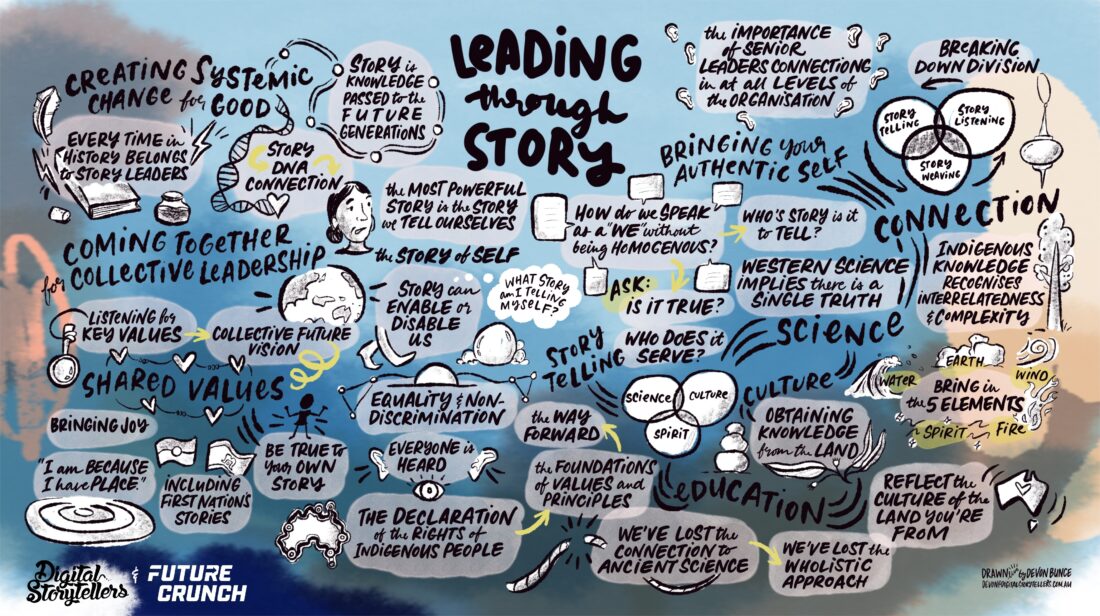 LEADING
through
STORY
CREATING SYSTEMIC
CHANGE for GOOD
EVERY TIME in
HISTORY BELONGS
to STORY LEADERS
STORY is
KNOWLEDGE
PASSED to the
FUTURE
GENERATIONS
STORY
DNA
CONNECTION
the MOST POWERFUL
STORY is the STORY
we TELL OURSELVES
the STORY of SELF
the IMPORTANCE
of SENIOR
LEADERS CONNECTIONG
in at all LEVELS of
the ORGANISATION
BREAKING
DOWN DIVISION
STORY
TELLING
STORY
LISTENING
STORY
WEAVING
BRINGING YOUR
AUTHENTIC SELF
HOW do we SPEAK
as a "WE" without
being HOMOGENOUS?
WHO'S STORY is it
to TELL?
ASK:
IS IT TRUE?
WHO DOES it
SERVE?
WESTERN SCIENCE
IMPLIES there is a
SINGLE TRUTH
CONNECTION
INDIGENOUS
KNOWLEDGE
RECOGNISES
INTERRELATEDNESS
& COMPLEXITY
COMING TOGETHER
for COLLECTIVE LEADERSHIP
LISTENING for
KEY VALUES
COLLECTIVE FUTURE
VISION
STORY can
ENABLE or
DISABLE
US
WHAT STORY
am I TELLING
MYSELF?
SHARED VALUES
BRINGING JOY
"I am BECAUSE
I have PLACE."
INCLUDING
FIRST NATIONS
STORIES
BE TRUE to
your OWN
STORY
EQUALITY & NON-
DISCRIMINATION
EVERYONE is
HEARD
THE DECLARATION
of the RIGHTS of
INDIGENOUS PEOPLE
the WAY
FORWARD
the FOUNDATIONS
of VALUES and
PRINCIPLES
STORY
TELLING
SCIENCE
CULTURE
SCIENCE
CULTURE
SPIRIT
OBTAINING
KNOWLEDGE
from the LAND
EDUCATION
WE'VE LOST the
CONNECTION to
ANCIENT SCIENCE
WE'VE LOST the
WHOLISTIC
APPROACH
EARTH
WATER
WIND
BRING in
the 5 ELEMENTS
SPIRIT
FIRE
REFLECT the
CULTURE of the
LAND YOU'RE
FROM
Digital
Storytellers
&
FUTURE
CRUNCH
DRAWN live by DEVON BUNCE
DEVON@DIGITALSTORYTELLERS.COM.AU